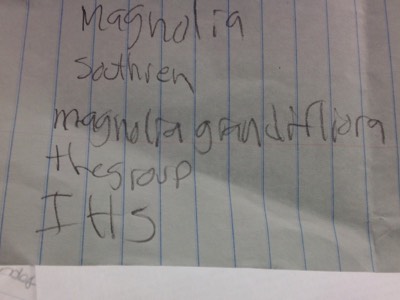 Magnolia
Sothren
magnolia grandifliora
thegroup
IHS